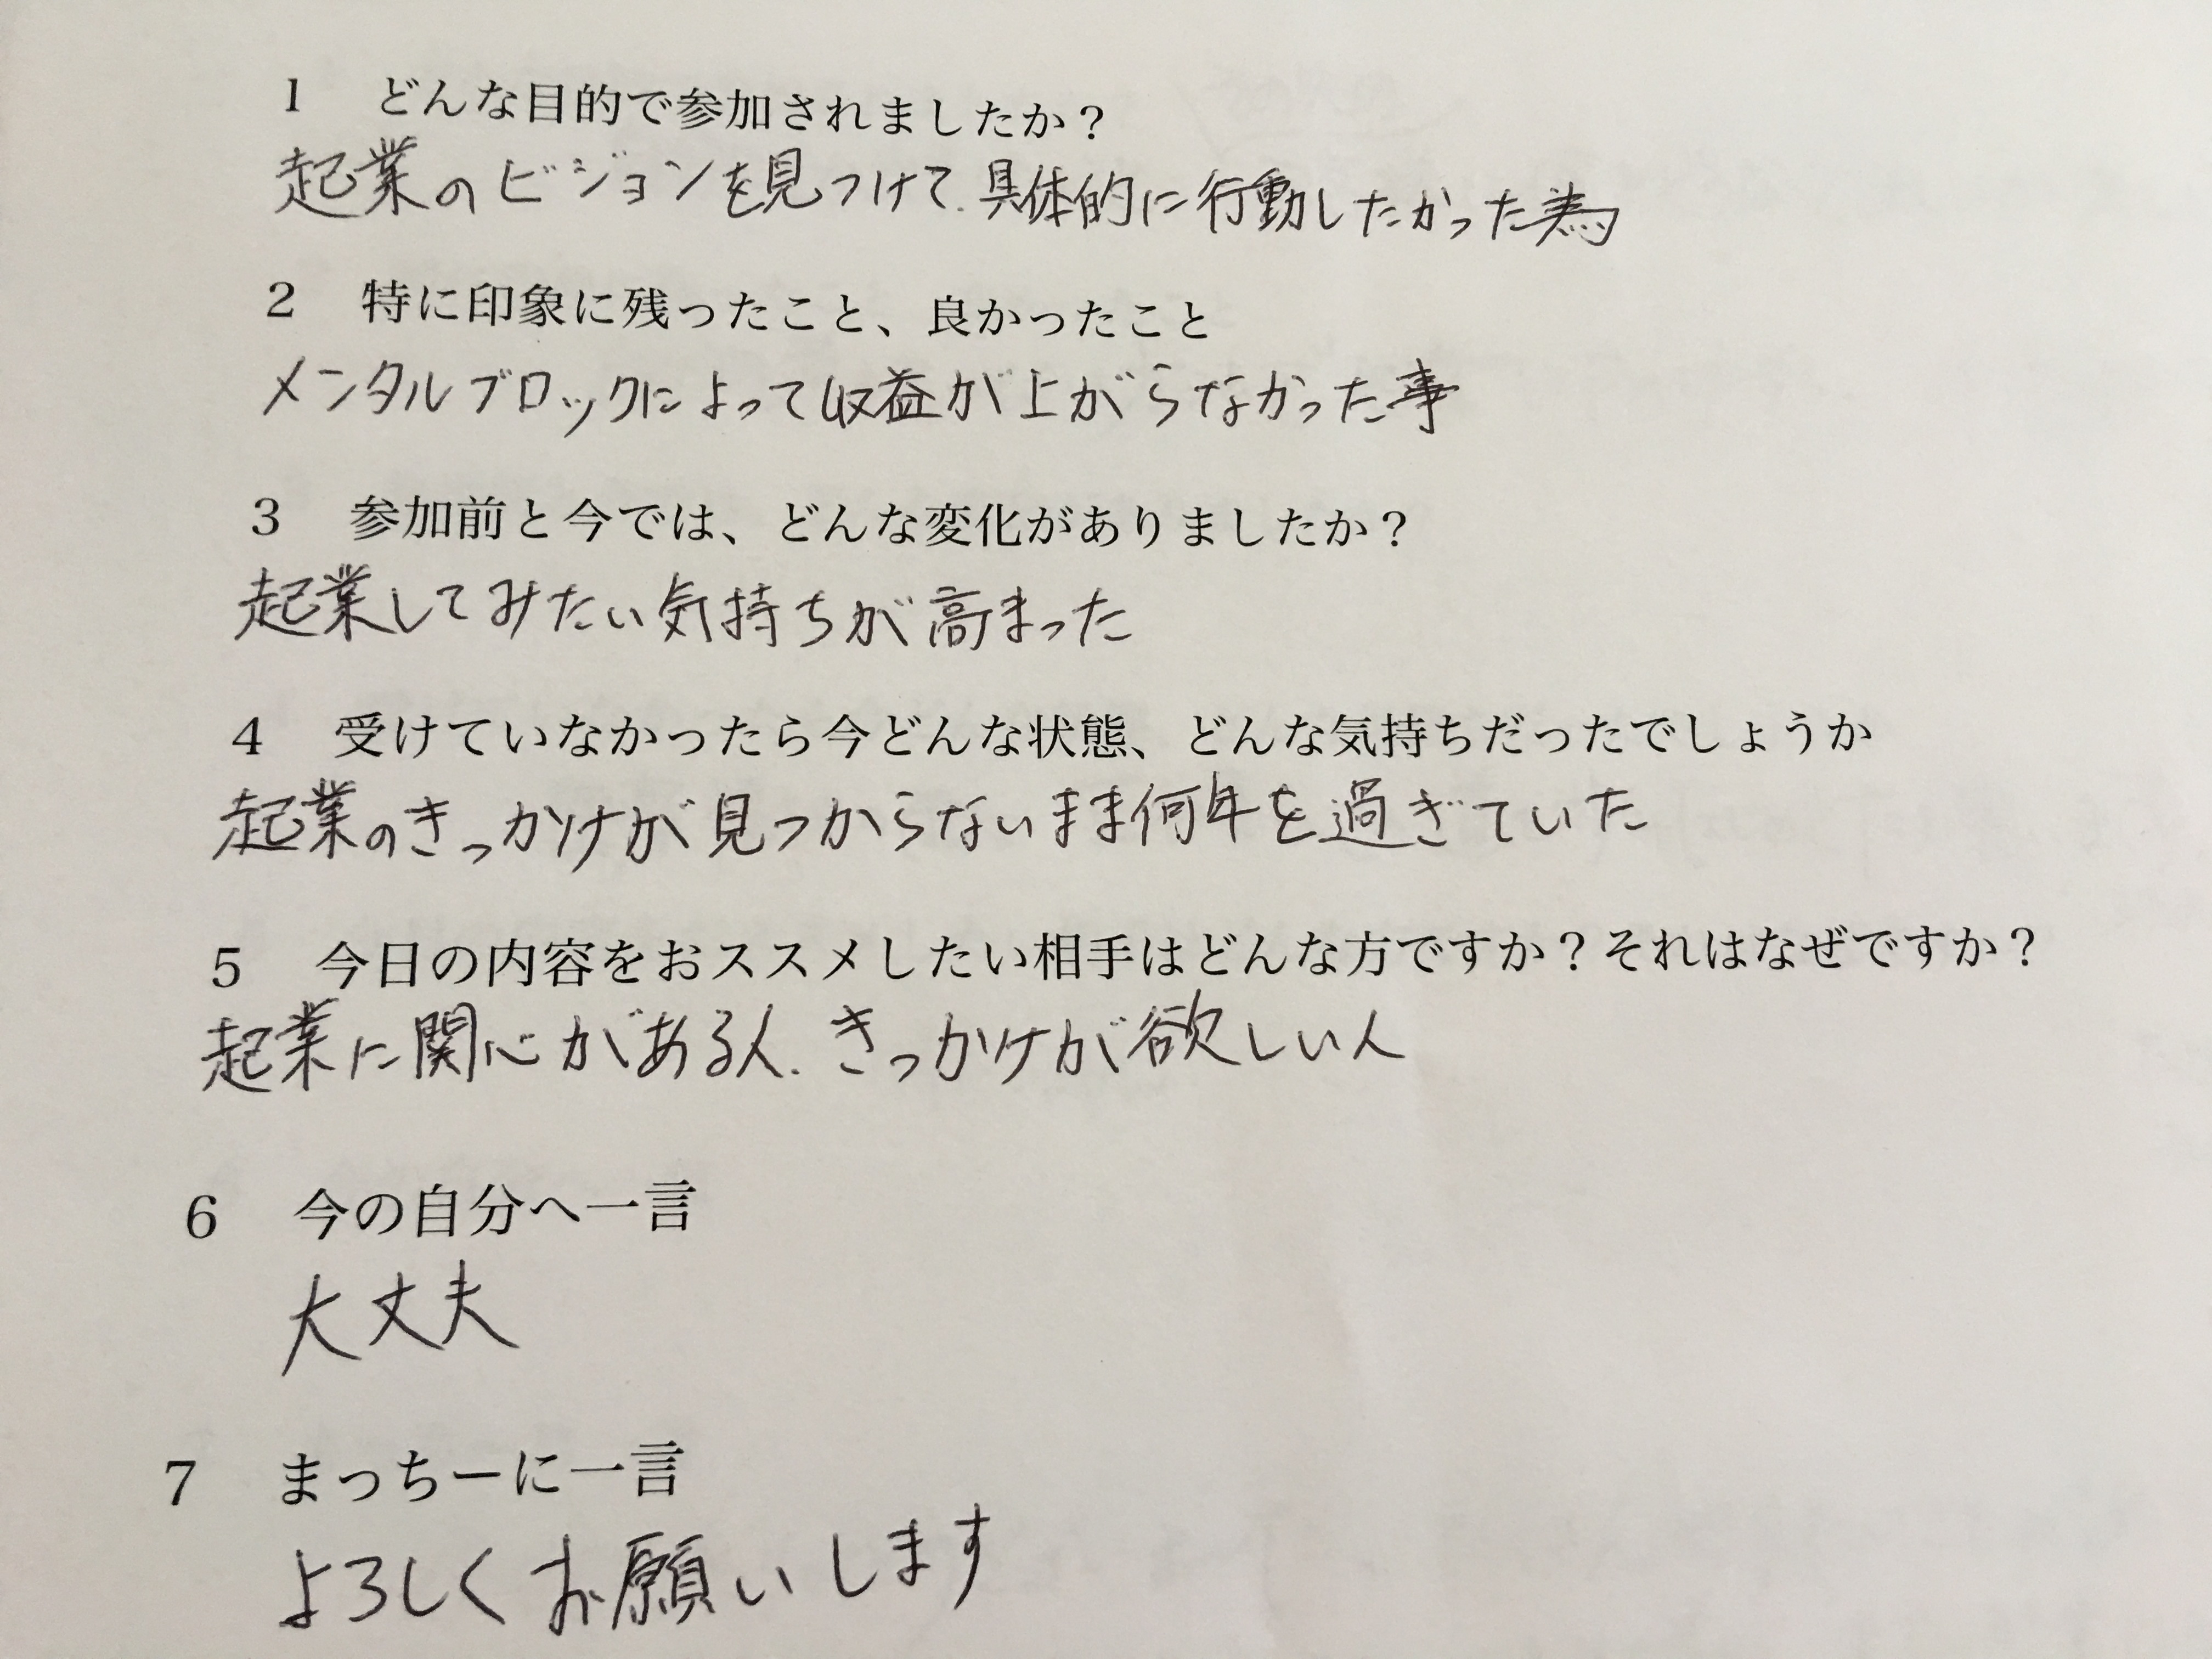 1 どんな目的で参加されましたか？
起業のビジョンを見つけて、具体的に行動したかった為
2 特に印象に残ったこと、良かったこと
メンタルブロックによって収益が上がらなかった事
3 参加前と今では、どんな変化がありましたか？
起業してみたい気持ちが高まった
4 受けていなかったら今どんな状態、どんな気持ちだったでしょうか
起業のきっかけが見つからないまま何年を過ぎていた
5 今日の内容をおススメしたい相手はどんな方ですか？それはなぜですか？
起業に関心がある人、きっかけが欲しい人
6 今の自分へ一言
大丈夫
7 まっちーに一言
よろしくお願いします